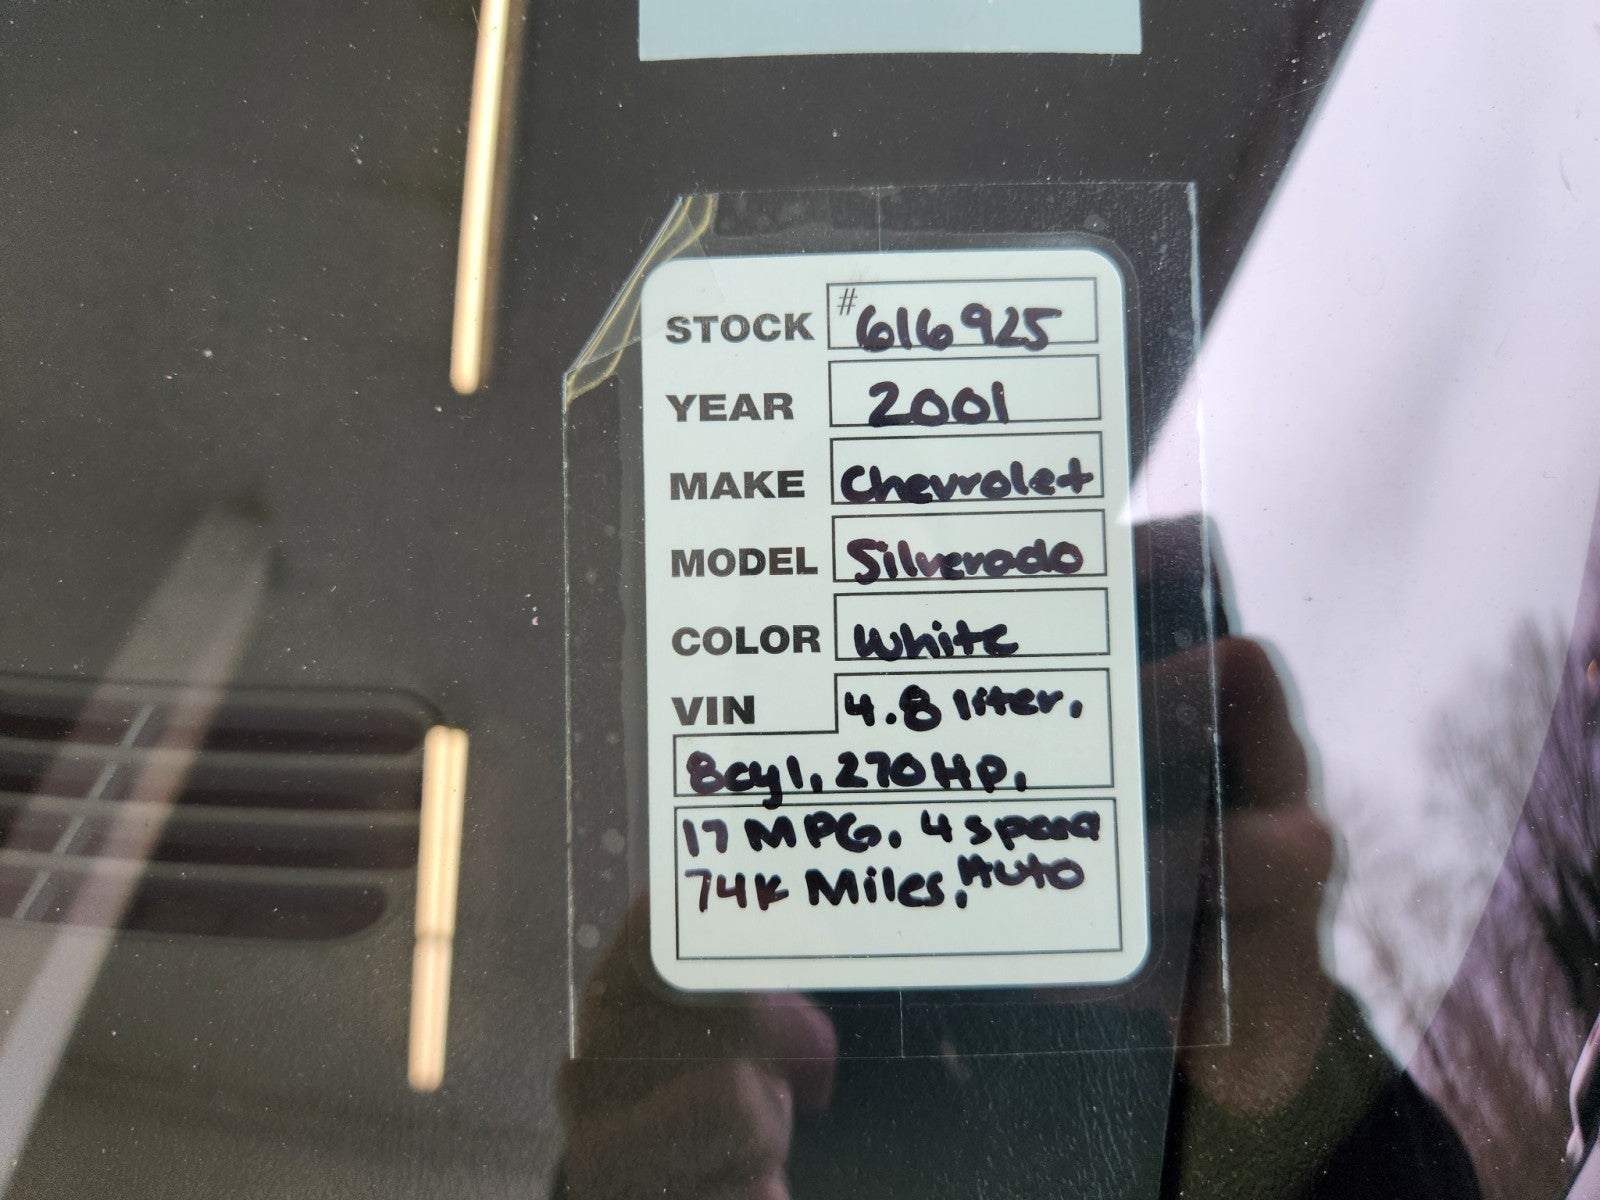 STOCK #616925
YEAR 2001
MAKE Chevrolet
MODEL Silverado
COLOR White
VIN 4.8 liter,
8cyl, 270 HP,
17 MPG, 4 speed
74k Miles, Auto